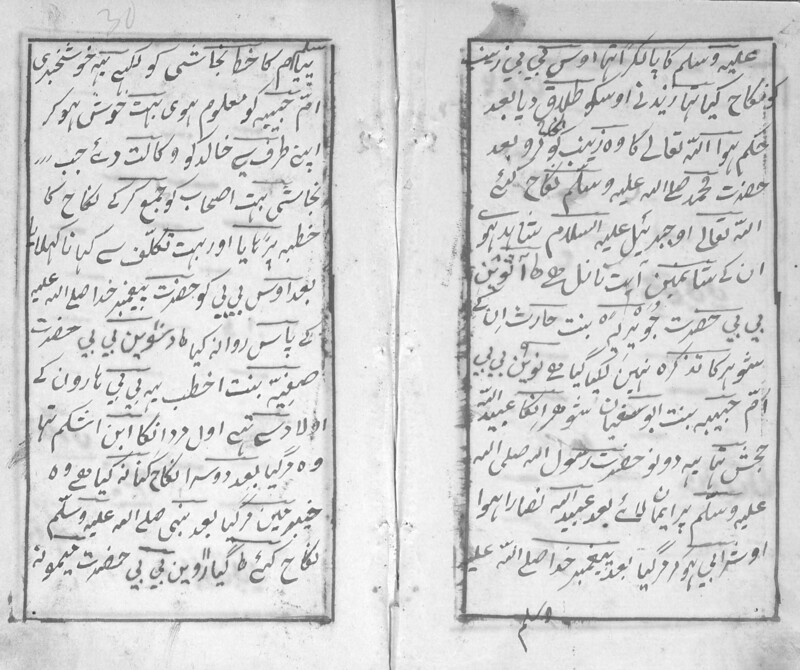 علیہ وسلم کا پالکڑا تہا اوس بی بی زینب
کو نکاح کیا تہا زید نے اوسکو طلاق دیا بعد
حکم ہوا اللہ تعالے کا وہ زینب کو نکاح کرو بعد
حضرت محمد صلے اللہ علیہ وسلم نکاح کئے
اللہ تعالے او جبرئیل علیہ السلام شاہد ہوے
ان کے شانمین آیت نازل ہے ۸ آٹھوین
بی بی حضرت جویریہ بنت حارث ان کے
شوہر کا تذکرہ نہین لکہا گیا ہے ۹ نوین بی بی
ام حبیبہ بنت ابو سفیان شوہر انکا عبید اللہ
جحش تہا یہ دونو حضرت رسول اللہ صلی اللہ
علیہ وسلم پر ایمان لائے بعد عبید اللہ نصارا ہوا
او شرابی ہوکر مرگیا بعد پیغمبر خدا صلے اللہ علیہ
وسلم
30
پیام کا خط نجاشی کو لکہے یہہ خوشخبری
ام حبیبہ کو معلوم ہوی بہت خوش ہوکر
اپنے طرف سے خالد کو وکالت دئے جب
نجاشی بہت اصحاب کو جمع کرکے نکاح کا
خطبہ پڑہایا اور بہت تکلف سے کہانا کہلایا
بعد اوس بی بی کو حضرت پیغمبر خدا صلے اللہ علیہ
کے پاس روانہ کیا ۱۰ دسوین بی بی حضرت
صفیہ بنت اخطب یہہ بی بی ہارون کے
اولاد سے تہے اول مرد انکا ابن اشکم تہا
وہ مرگیا بعد دوسرا نکاح کنانہ کیا ہے وہ
خیبر مین مرگیا بعد نبی صلے اللہ علیہ وسلم
نکاح کئے ۱۱ گیاروین بی بی حضرت میمونہ